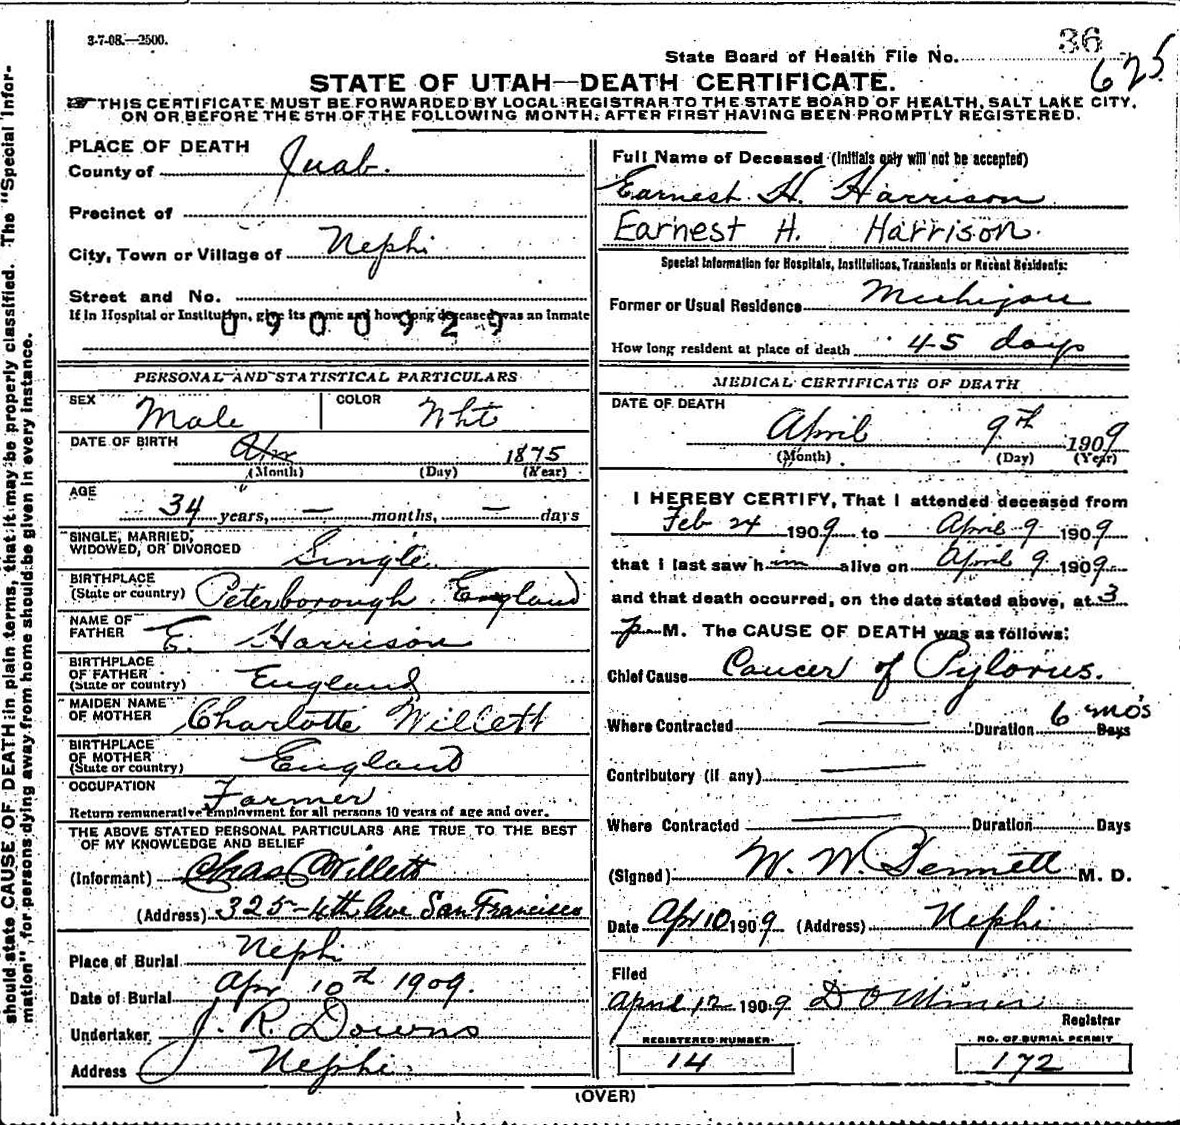 3-7-08.—2500.
36
State Board of Health File No.
625
STATE OF UTAH—DEATH CERTIFICATE.
THIS CERTIFICATE MUST BE FORWARDED BY LOCAL REGISTRAR TO THE STATE BOARD OF HEALTH, SALT LAKE CITY,
ON OR BEFORE THE 5TH OF THE FOLLOWING MONTH, AFTER FIRST HAVING BEEN PROMPTLY REGISTERED.
PLACE OF DEATH
County of Juab.
Precinct of
City, Town or Village of Nephi
Street and No.
If in Hospital or Institution, give its name and how long deceased was an inmate
0900929
PERSONAL AND STATISTICAL PARTICULARS
SEX Male COLOR Wht
DATE OF BIRTH Apr 1875
(Month) (Day) (Year)
AGE
34 years, — months, — days
SINGLE, MARRIED,
WIDOWED, OR DIVORCED Single
BIRTHPLACE
(State or country) Peterborough, England
NAME OF
FATHER E. Harrison
BIRTHPLACE
OF FATHER
(State or country) England
MAIDEN NAME
OF MOTHER Charlotte Willett
BIRTHPLACE
OF MOTHER
(State or country) England
OCCUPATION Farmer
Return remunerative employment for all persons 10 years of age and over.
THE ABOVE STATED PERSONAL PARTICULARS ARE TRUE TO THE BEST
OF MY KNOWLEDGE AND BELIEF
(Informant) Chas Willett
(Address) 325-4th Ave San Francisco
Place of Burial Nephi
Date of Burial Apr 10th 1909.
Undertaker J. R. Downs
Address Nephi
Full Name of Deceased (Initials only will not be accepted)
Earnest H. Harrison
Earnest H. Harrison.
Special Information for Hospitals, Institutions, Transients or Recent Residents:
Former or Usual Residence Michigan
How long resident at place of death 45 days
MEDICAL CERTIFICATE OF DEATH
DATE OF DEATH
April 9th 1909
(Month) (Day) (Year)
I HEREBY CERTIFY, That I attended deceased from
Feb 24 1909 to April 9 1909
that I last saw him alive on April 9 1909
and that death occurred, on the date stated above, at 3
p M. The CAUSE OF DEATH was as follows:
Chief Cause Cancer of Pylorus.
Where Contracted — Duration 6 mo's Days
Contributory (if any) —
Where Contracted — Duration Days
(Signed) W. W. Bennett M. D.
Date Apr 10 1909 (Address) Nephi
Filed
April 12 1909 D O Miner
Registrar
REGISTERED NUMBER
14
NO. OF BURIAL PERMIT
172
(OVER)
should state CAUSE OF DEATH in plain terms, that it may be properly classified. The "Special Infor-
mation" for persons dying away from home should be given in every instance.